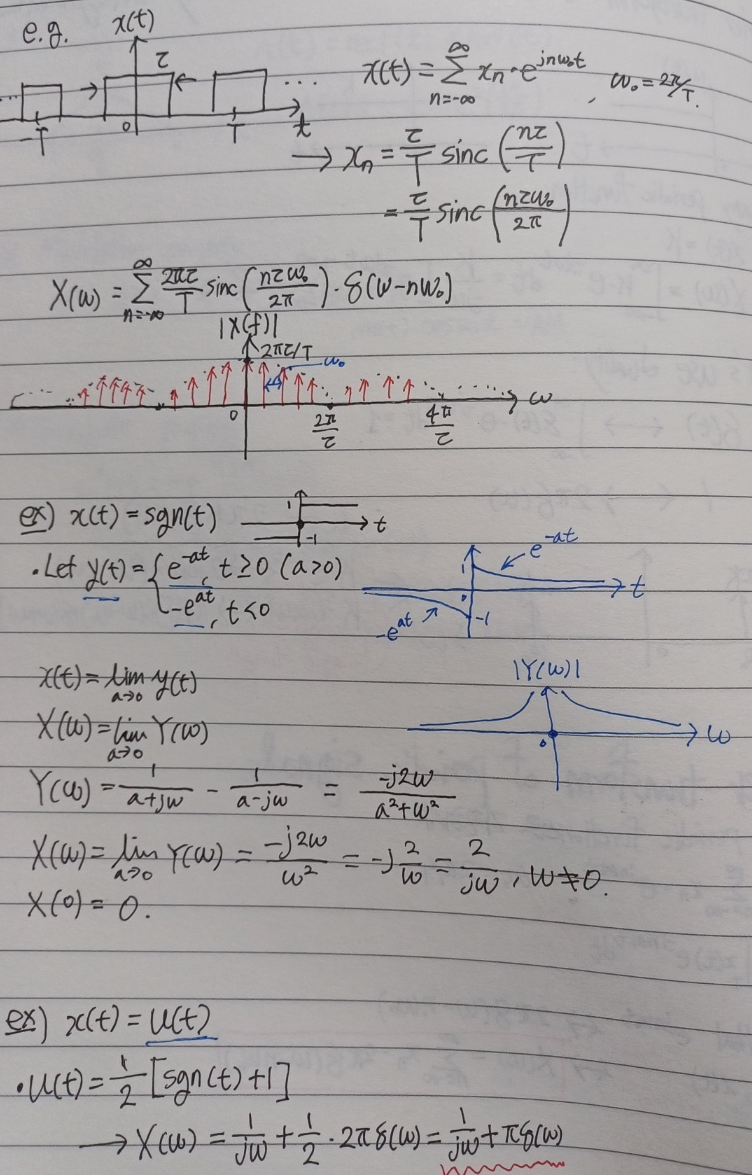 e.g. x(t)
τ
-T 0 T t
x(t) = ∑_{n=-∞}^{∞} xₙ·e^{jnω₀t}, ω₀ = 2π/T.
→ xₙ = τ/T sinc(nτ/T)
= τ/T sinc(nτω₀/2π)
X(ω) = ∑_{n=-∞}^{∞} 2πτ/T sinc(nτω₀/2π)·δ(ω-nω₀)
|X(f)|
2πτ/T ω₀
0 2π/τ 4π/τ ω
ex) x(t) = sgn(t) 1 -1 t
·Let y(t) = { e^{-at}, t≥0 (a>0)
-e^{at}, t<0
e^{-at}
1 0 t
-e^{at} -1
x(t) = lim_{a→0} y(t)
|Y(ω)|
0 ω
X(ω) = lim_{a→0} Y(ω)
Y(ω) = 1/(a+jω) - 1/(a-jω) = -j2ω/(a²+ω²)
X(ω) = lim_{a→0} Y(ω) = -j2ω/ω² = -j 2/ω = 2/jω, ω≠0.
X(0) = 0.
ex) x(t) = u(t)
·u(t) = 1/2 [sgn(t)+1]
→ X(ω) = 1/jω + 1/2 · 2πδ(ω) = 1/jω + πδ(ω)